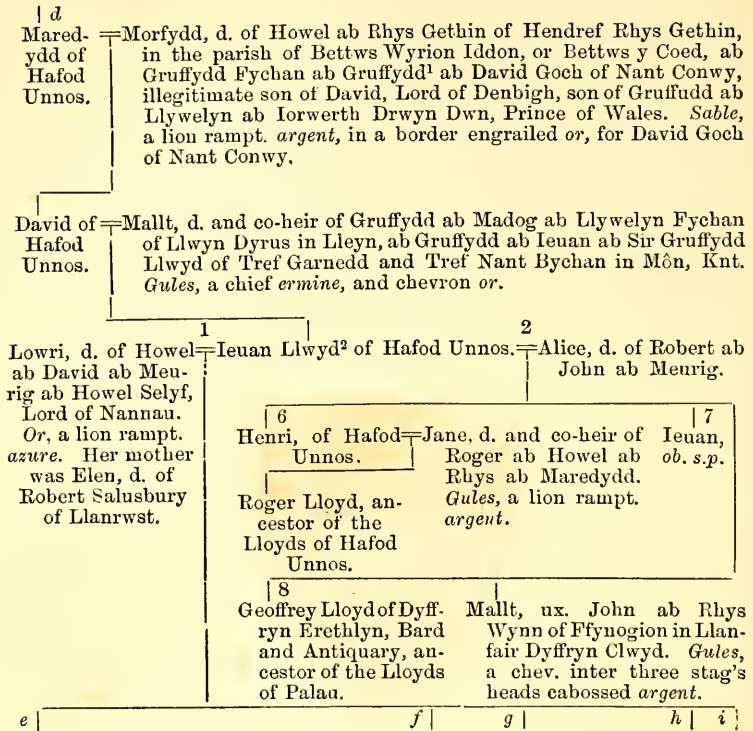 d
Mared-
ydd of
Hafod
Unnos.
Morfydd, d. of Howel ab Rhys Gethin of Hendref Rhys Gethin,
in the parish of Bettws Wyrion Iddon, or Bettws y Coed, ab
Gruffydd Fychan ab Gruffydd¹ ab David Goch of Nant Conwy,
illegitimate son of David, Lord of Denbigh, son of Gruffudd ab
Llywelyn ab Iorwerth Drwyn Dwn, Prince of Wales. Sable,
a lion rampt. argent, in a border engrailed or, for David Goch
of Nant Conwy.
David of
Hafod
Unnos.
Mallt, d. and co-heir of Gruffydd ab Madog ab Llywelyn Fychan
of Llwyn Dyrus in Lleyn, ab Gruffydd ab Ieuan ab Sir Gruffydd
Llwyd of Tref Garnedd and Tref Nant Bychan in Môn, Knt.
Gules, a chief ermine, and chevron or.
1
2
Lowri, d. of Howel
ab David ab Meu-
rig ab Howel Selyf,
Lord of Nannau.
Or, a lion rampt.
azure. Her mother
was Elen, d. of
Robert Salusbury
of Llanrwst.
Ieuan Llwyd² of Hafod Unnos.
Alice, d. of Robert ab
John ab Meurig.
6
Henri, of Hafod
Unnos.
Jane, d. and co-heir of
Roger ab Howel ab
Rhys ab Maredydd.
Gules, a lion rampt.
argent.
7
Ieuan,
ob. s.p.
Roger Lloyd, an-
cestor of the
Lloyds of Hafod
Unnos.
8
Geoffrey Lloyd of Dyff-
ryn Erethlyn, Bard
and Antiquary, an-
cestor of the Lloyds
of Palau.
Mallt, ux. John ab Rhys
Wynn of Ffynogion in Llan-
fair Dyffryn Clwyd. Gules,
a chev. inter three stag's
heads cabossed argent.
e f g h i